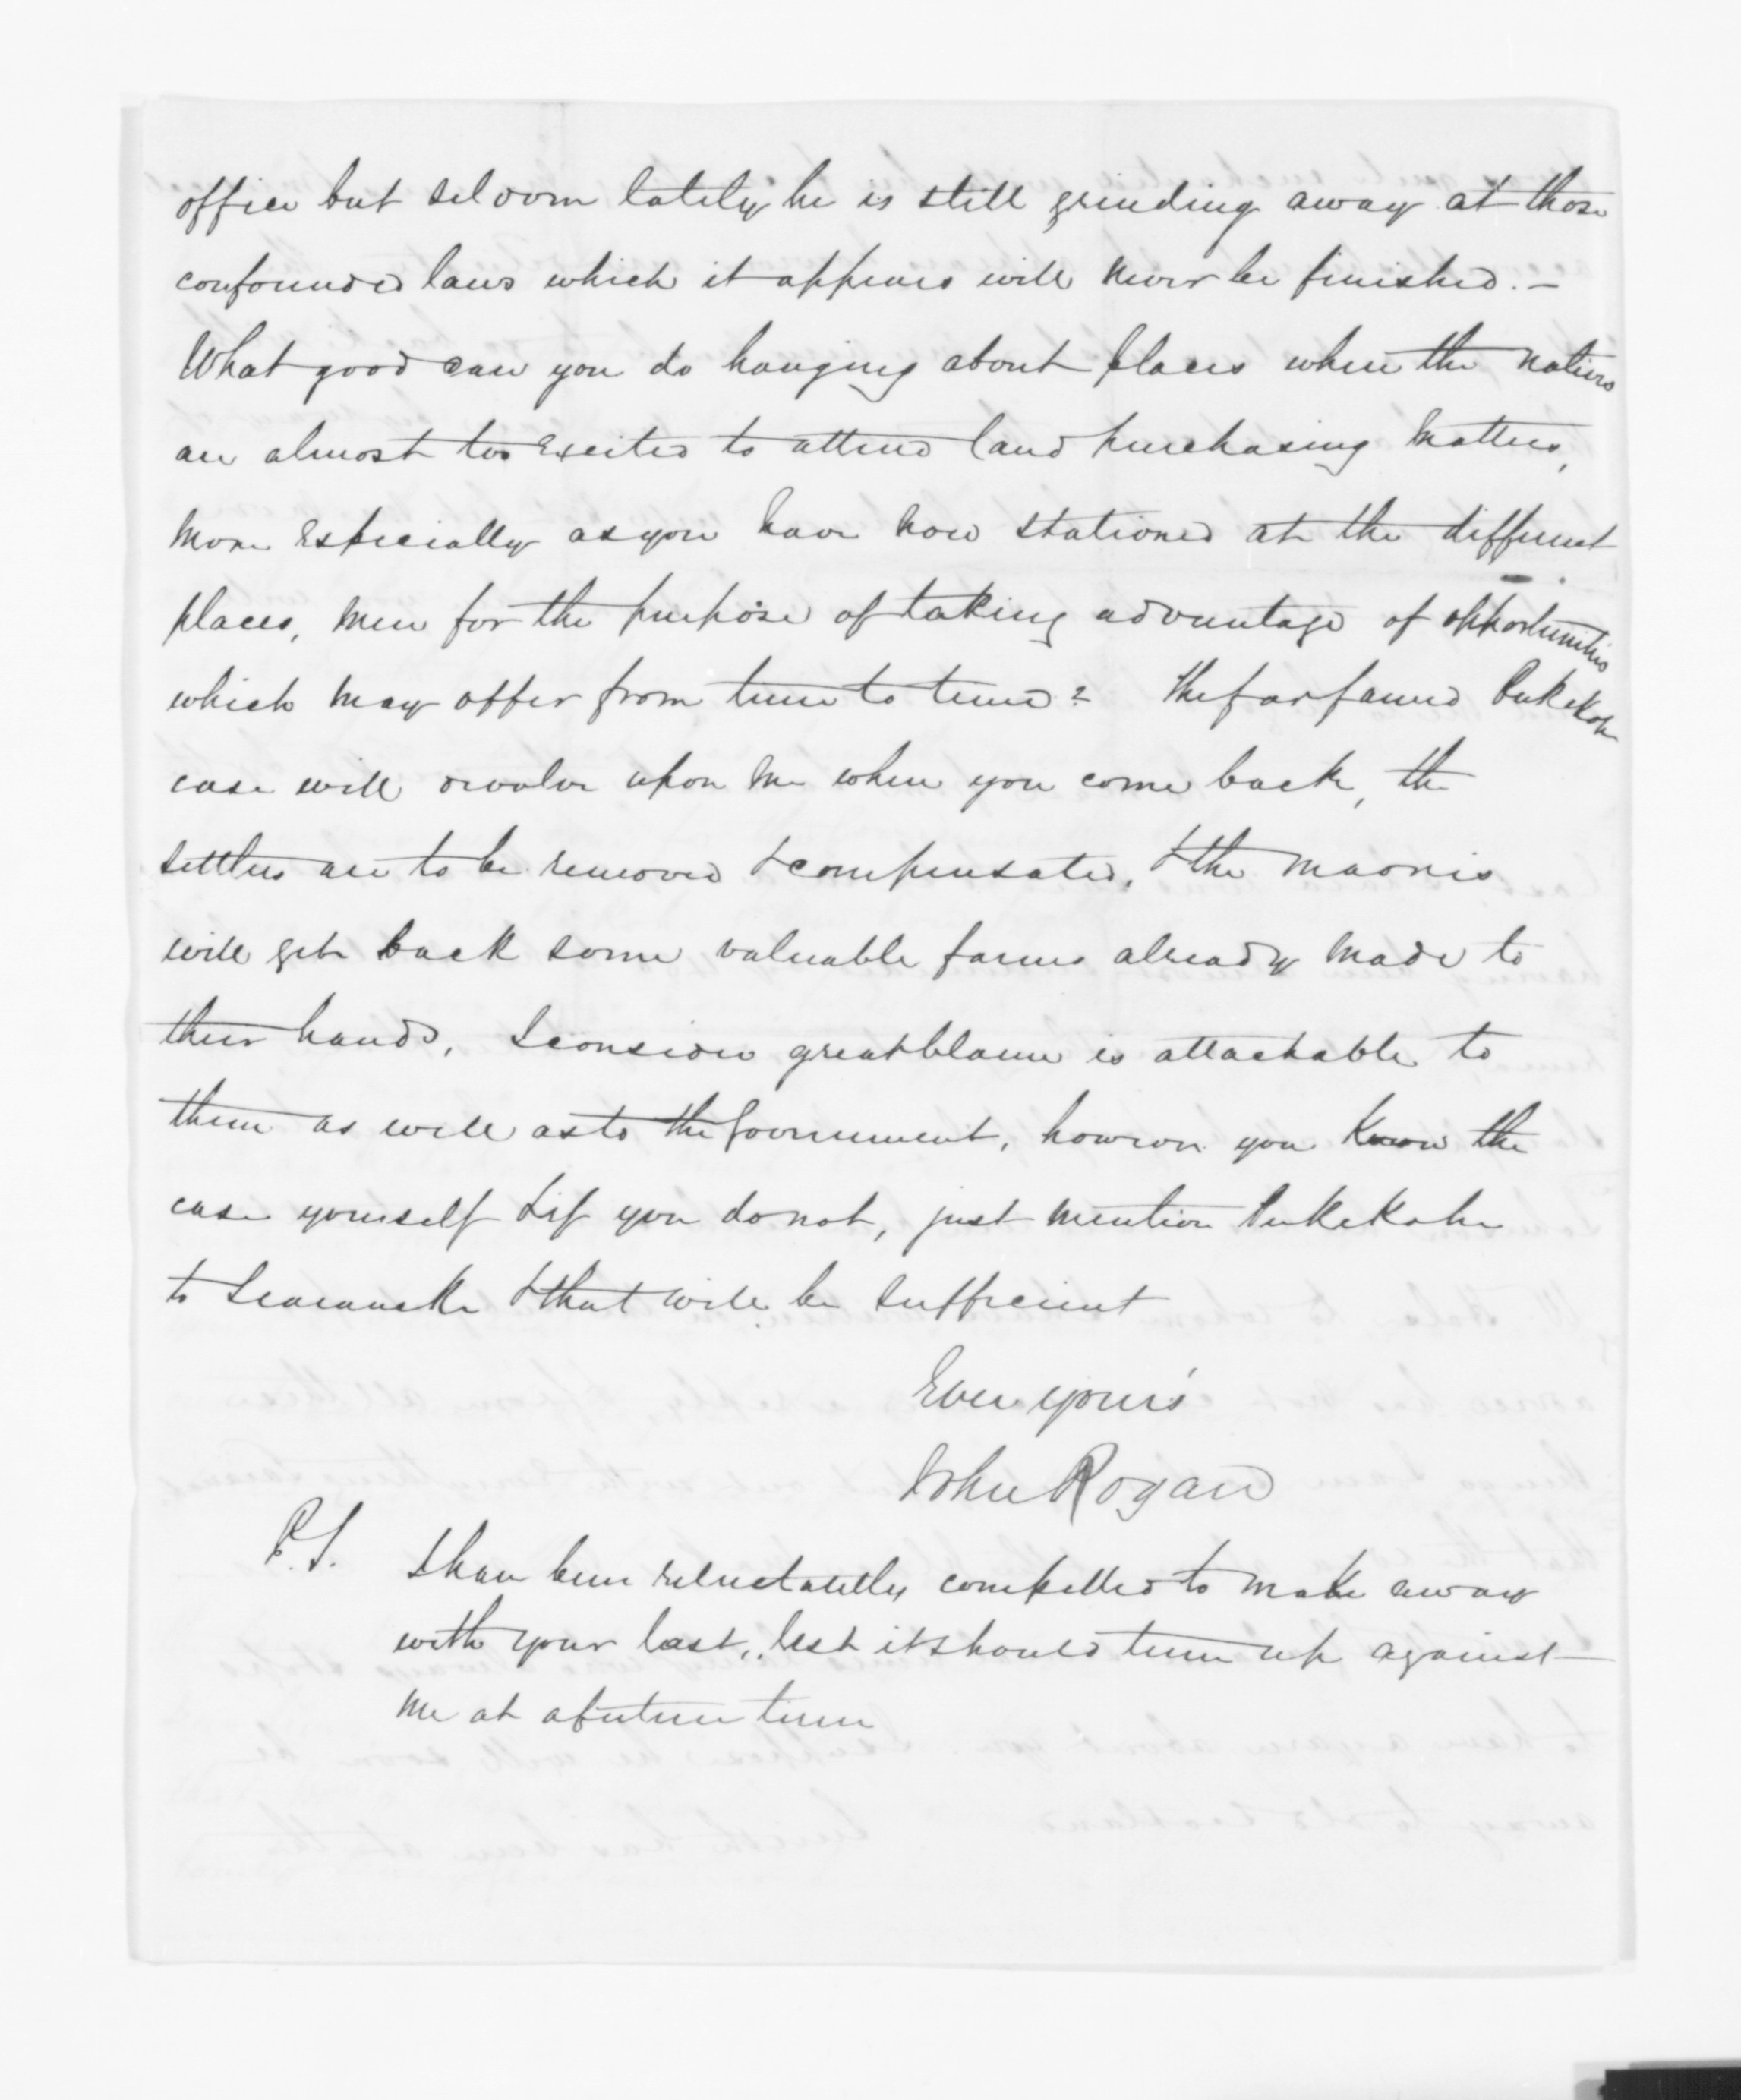 office but seldom lately he is still grinding away at those
confounded laws which it appears will never be finished. –
What good can you do hanging about places where the natives
are almost too excited to attend land purchasing matters,
more especially as you have now stationed at the different
places, men for the purpose of taking advantage of opportunities
which may offer from time to time? The far famed Pukekohe
case will devolve upon me when you come back, the
settlers are to be removed & compensated, & the maoris
will get back some valuable farms already made to
their hands, I consider great blame is attachable to
them as well as to the Government, however you know the
case yourself & if you do not, just mention Pukekohe
to & that will be sufficient
Ever your's
John Rogan
P.S. I have been reluctantly compelled to make away
with your last, lest it should turn up against
me at a future time